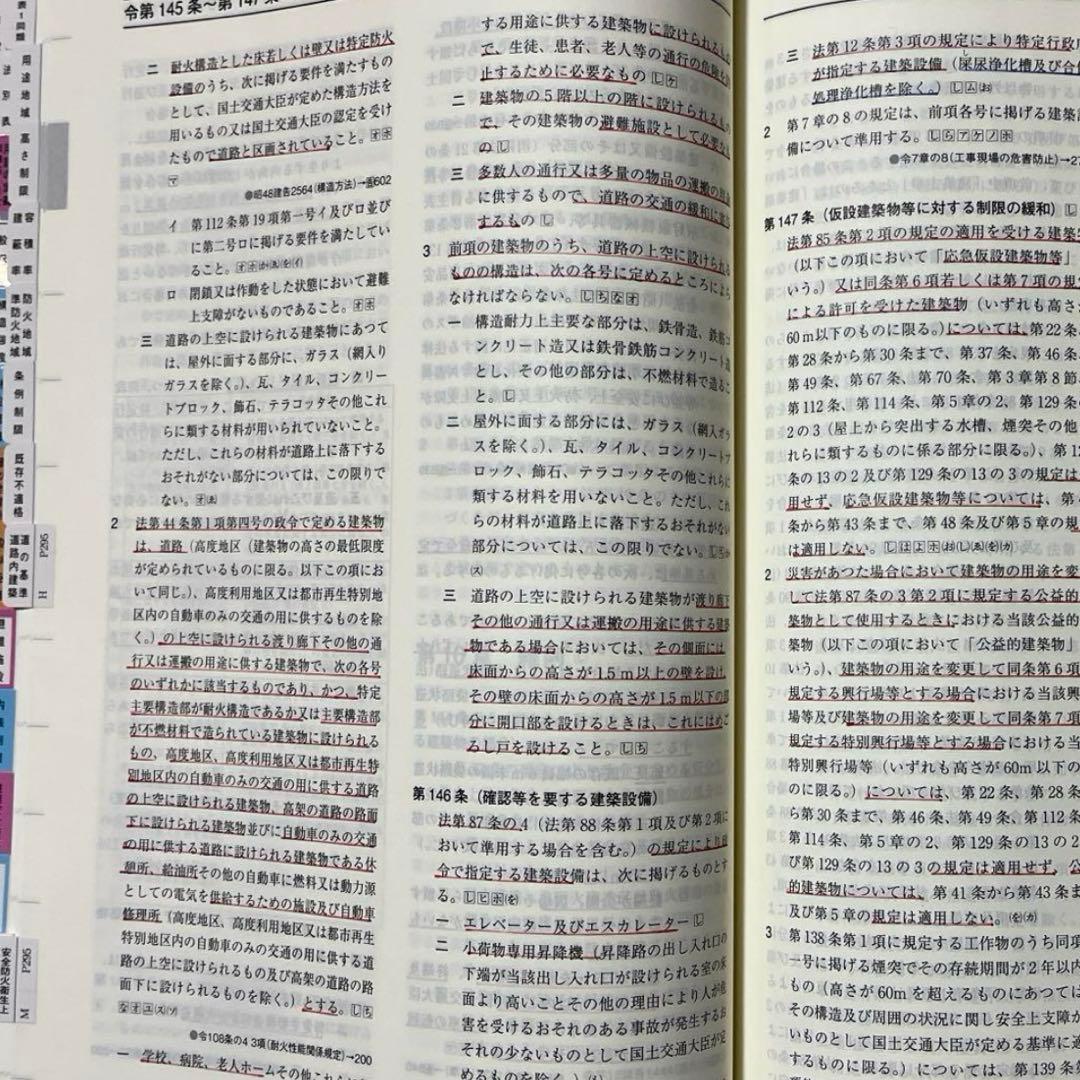 令第145条～第147条
二 耐火構造とした床若しくは壁又は特定防火
設備のうち、次に掲げる要件を満たすもの
として、国土交通大臣が定めた構造方法を
用いるもの又は国土交通大臣の認定を受け
たもので道路と区画されていること。
●昭48建告2564(構造方法)→告602
イ 第112条第19項第一号イ及びロ並び
に第二号ロに掲げる要件を満たしてい
ること。
ロ 閉鎖又は作動をした状態において避難
上支障がないものであること。
三 道路の上空に設けられる建築物にあつて
は、屋外に面する部分に、ガラス(網入り
ガラスを除く。)、瓦、タイル、コンクリー
トブロック、飾石、テラコッタその他これ
らに類する材料が用いられていないこと。
ただし、これらの材料が道路上に落下する
おそれがない部分については、この限りで
ない。
2 法第44条第1項第四号の政令で定める建築物
は、道路(高度地区(建築物の高さの最低限度
が定められているものに限る。以下この項にお
いて同じ。)、高度利用地区又は都市再生特別地
区内の自動車のみの交通の用に供するものを除
く。)の上空に設けられる渡り廊下その他の通
行又は運搬の用途に供する建築物で、次の各号
のいずれかに該当するものであり、かつ、特定
主要構造部が耐火構造であるか又は主要構造部
が不燃材料で造られている建築物に設けられる
もの、高度地区、高度利用地区又は都市再生特
別地区内の自動車のみの交通の用に供する道路
の上空に設けられる建築物、高架の道路の路面
下に設けられる建築物並びに自動車のみの交通
の用に供する道路に設けられる建築物である休
憩所、給油所その他の自動車に燃料又は動力源
としての電気を供給するための施設及び自動車
修理所(高度地区、高度利用地区又は都市再生
特別地区内の自動車のみの交通の用に供する道
路の上空に設けられるもの及び高架の道路の路
面下に設けられるものを除く。)とする。
●令108条の4 3項(耐火性能関係規定)→200
一 学校、病院、老人ホームその他これらに
する用途に供する建築物に設けられるもの
で、生徒、患者、老人等の通行の危険を
止するために必要なもの
二 建築物の5階以上の階に設けられるもの
で、その建築物の避難施設として必要なも
の
三 多数人の通行又は多量の物品の運搬の用途
に供するもので、道路の交通の緩和に寄
するもの
3 前項の建築物のうち、道路の上空に設けられる
ものの構造は、次の各号に定めるところによら
なければならない。
一 構造耐力上主要な部分は、鉄骨造、鉄筋コ
ンクリート造又は鉄骨鉄筋コンクリート造
とし、その他の部分は、不燃材料で造るこ
と。
二 屋外に面する部分には、ガラス(網入ガラ
スを除く。)、瓦、タイル、コンクリートブ
ロック、飾石、テラコッタその他これらに
類する材料を用いないこと。ただし、これ
らの材料が道路上に落下するおそれがない
部分については、この限りでない。
三 道路の上空に設けられる建築物が渡り廊下
その他の通行又は運搬の用途に供する建築
物である場合においては、その側面には、
床面からの高さが1.5m以上の壁を設け、
その壁の床面からの高さが1.5m以下の部
分に開口部を設けるときは、これにはめご
ろし戸を設けること。
第146条(確認等を要する建築設備)
法第87条の4(法第88条第1項及び第2項に
おいて準用する場合を含む。)の規定により政
令で指定する建築設備は、次に掲げるものとす
る。
一 エレベーター及びエスカレーター
二 小荷物専用昇降機(昇降路の出し入れ口の
下端が当該出し入れ口が設けられる室の床
面より高いことその他の理由により人が危
害を受けるおそれのある事故が発生するお
それの少ないものとして国土交通大臣が定
めるものを除く。)
三 法第12条第3項の規定により特定行政庁
が指定する建築設備(屎尿浄化槽及び合併
処理浄化槽を除く。)
2 第7章の8の規定は、前項各号に掲げる建築設
備について準用する。
●令7章の8(工事現場の危害防止)→
第147条(仮設建築物等に対する制限の緩和)
法第85条第2項の規定の適用を受ける建築物
(以下この項において「応急仮設建築物等」
いう。)又は同条第6項若しくは第7項の規定
による許可を受けた建築物(いずれも高さ
60m以下のものに限る。)については、第22条
第28条から第30条まで、第37条、第46条
第49条、第67条、第70条、第3章第8節
第112条、第114条、第5章の2、第129条の
2の3(屋上から突出する水槽、煙突その他
れらに類するものに係る部分に限る。)、第12
条の13の2及び第129条の13の3の規定は
用せず、応急仮設建築物等については、第4
条から第43条まで、第48条及び第5章の規
は適用しない。
2 災害があつた場合において建築物の用途を変
して法第87条の3第2項に規定する公益的
築物として使用するときにおける当該公益的
築物(以下この項において「公益的建築物」
いう。)、建築物の用途を変更して同条第6項
規定する興行場等とする場合における当該興
場等及び建築物の用途を変更して同条第7項
規定する特別興行場等とする場合における当
特別興行場等(いずれも高さが60m以下の
のに限る。)については、第22条、第28条
ら第30条まで、第46条、第49条、第112条
第114条、第5章の2、第129条の13の2
び第129条の13の3の規定は適用せず、公
的建築物については、第41条から第43条ま
及び第5章の規定は適用しない。
3 第138条第1項に規定する工作物のうち同項
一号に掲げる煙突でその存続期間が2年以内
もの(高さが60mを超えるものにあつては
その構造及び周囲の状況に関し安全上支障が
いものとして国土交通大臣が定める基準に適
するものに限る。)については、第139条